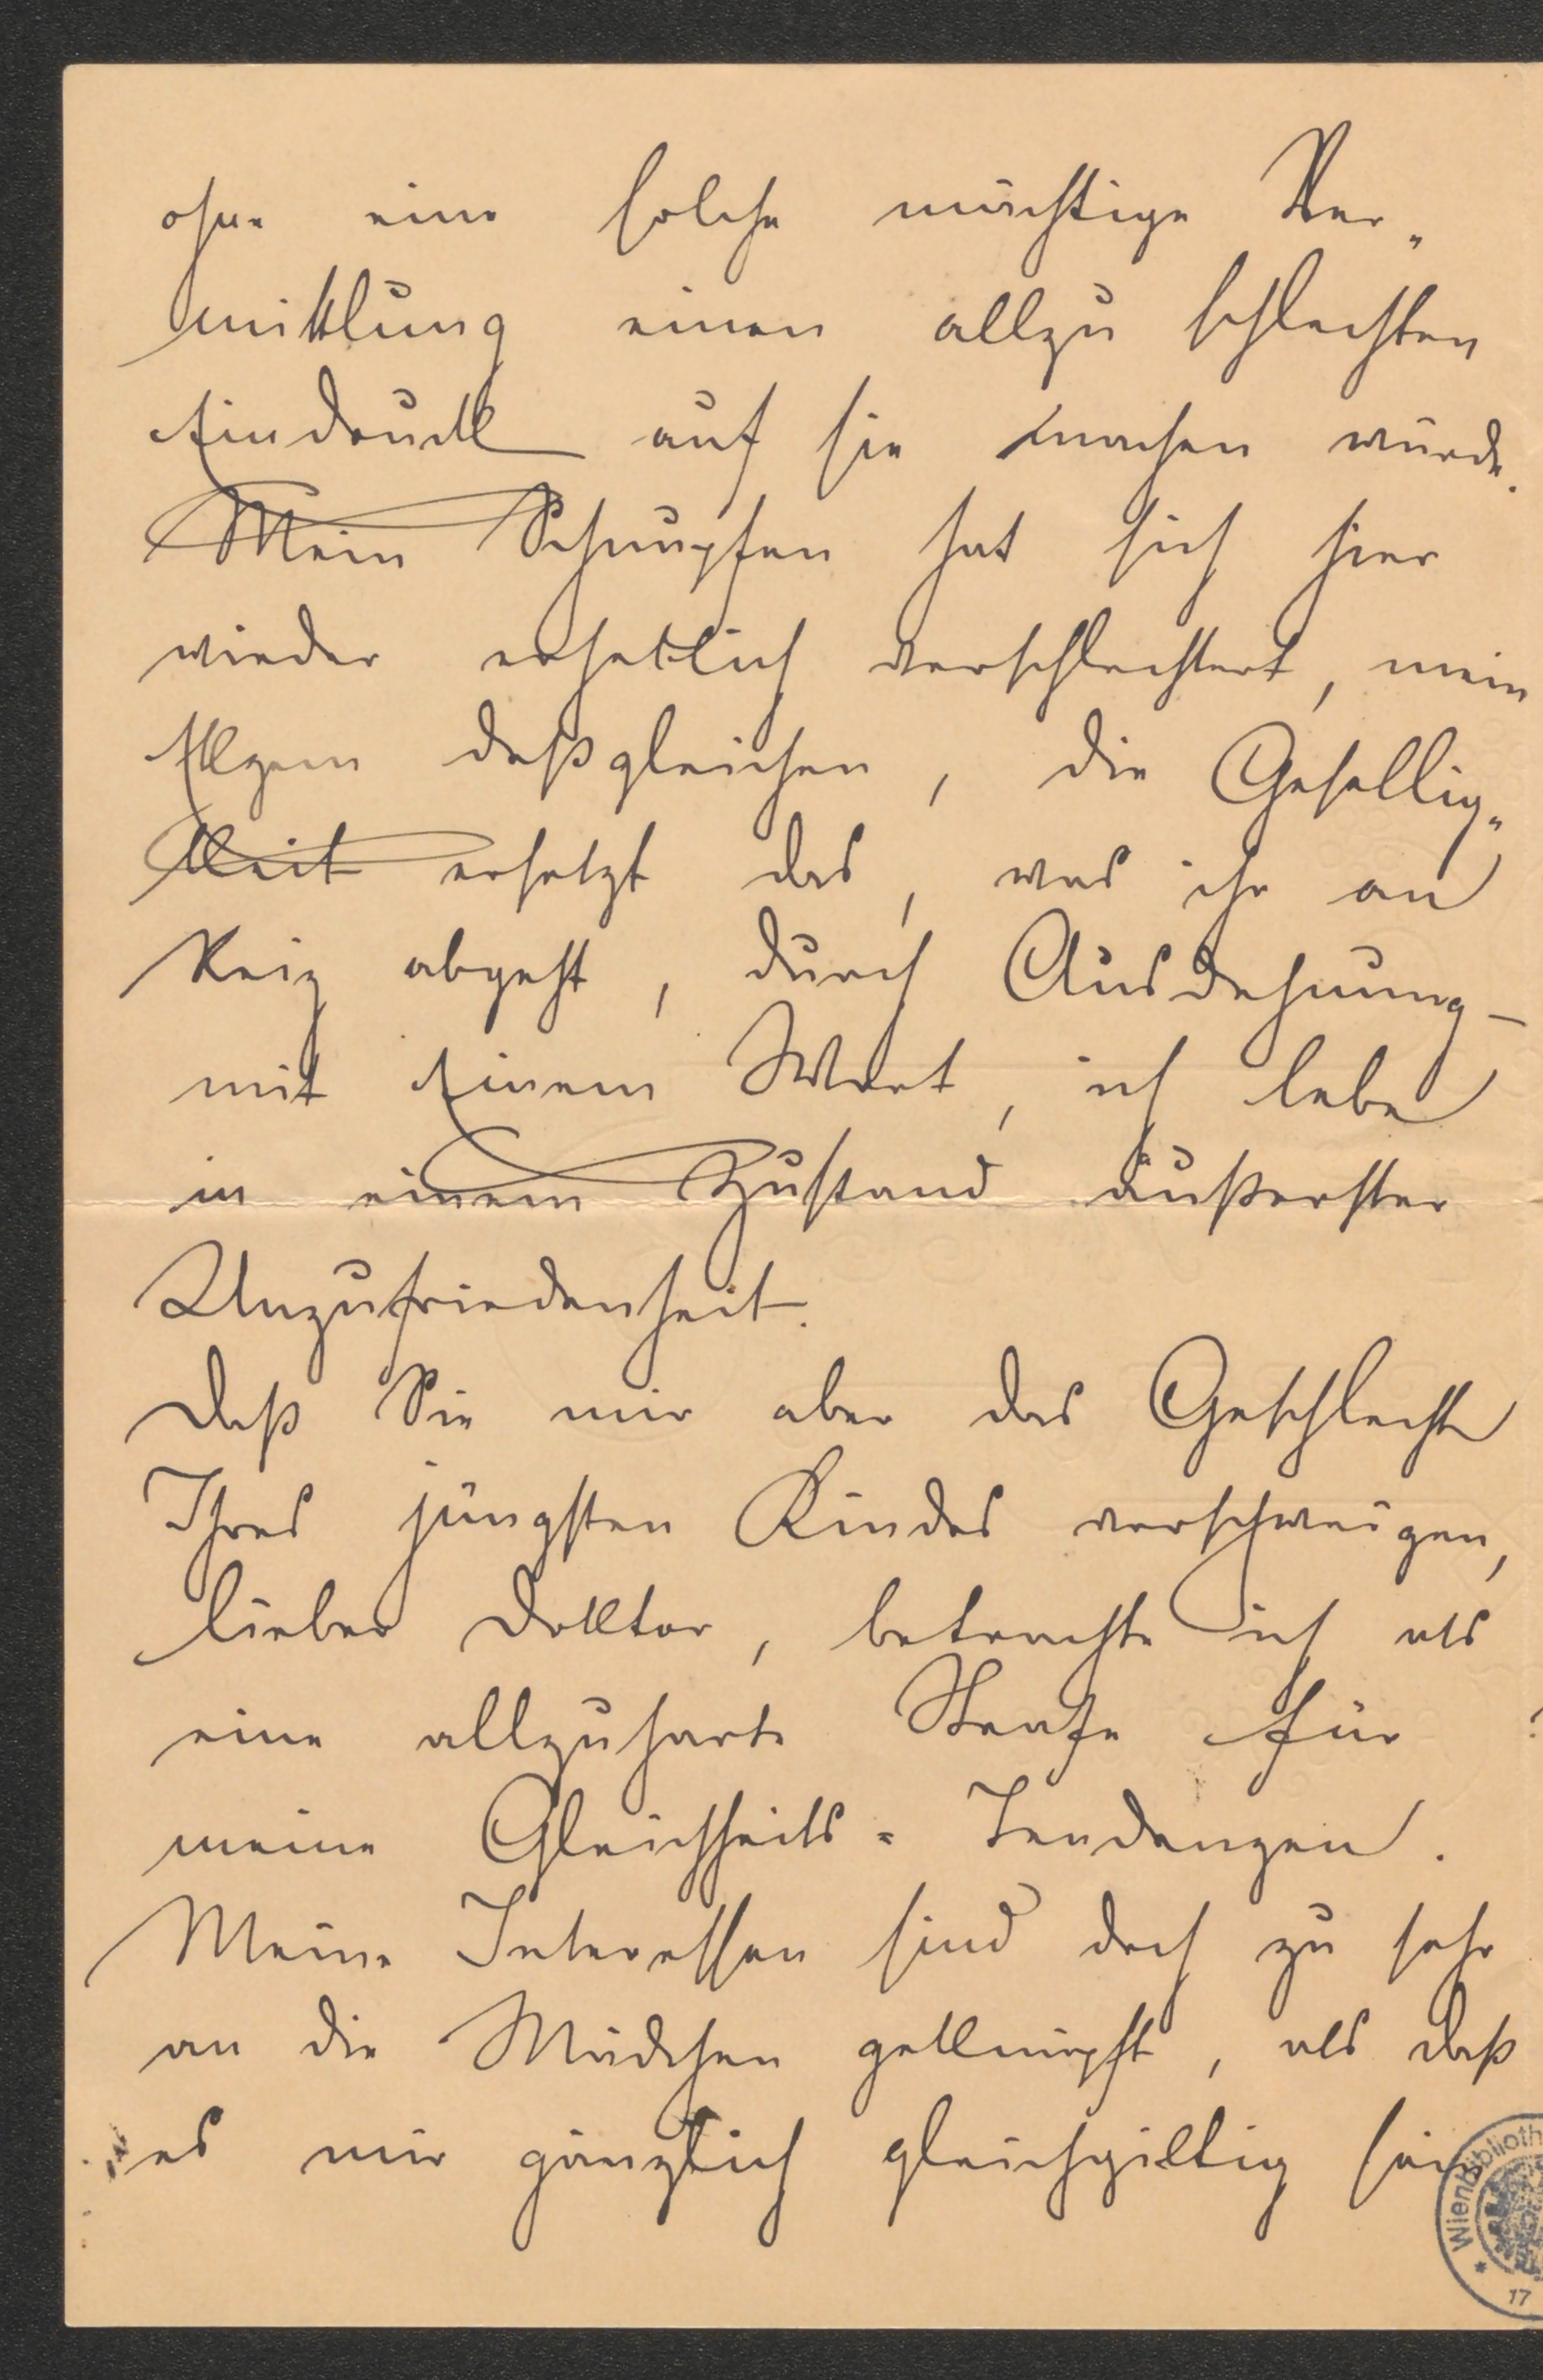 ohne eine solche mächtige Ver„
mittlung einen allzu schlechten
Eindruck auf sie machen würde.
Mein Schnupfen hat sich hier
wieder erheblich verschlechtert, mein
Ekzem deßgleichen, die Gesellig„
keit ersetzt das, was ihr an
Reiz abgeht, durch Ausdehnung –
mit Einem Wort, ich lebe
in einem Zustand äußerster
Unzufriedenheit.
Daß Sie mir aber das Geschlecht
Ihres jüngsten Kindes verschweigen,
lieber Doktor, betrachte ich als
eine allzuharte Strafe für
meine Gleichheits=Tendenzen.
Meine Interessen sind doch zu sehr
an die Mädchen geknüpft, als daß
es mir gänzlich gleichgiltig sein
Wienbiblioth
17